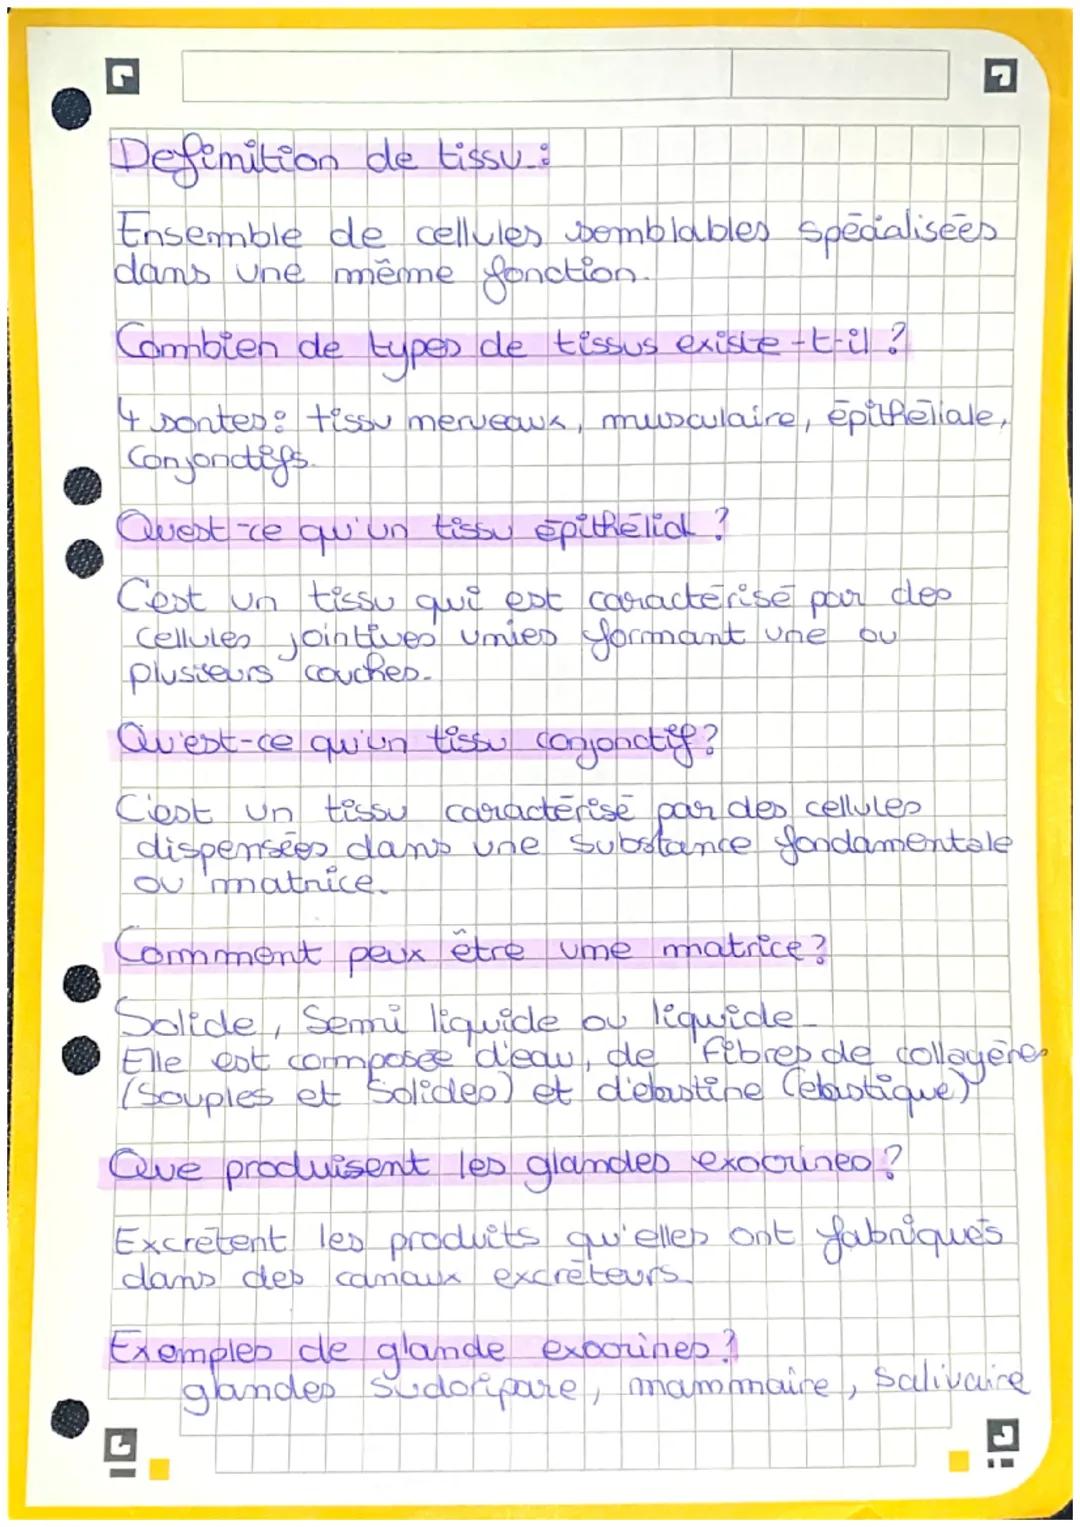 Definition de tissu :
Ensemble de cellules semblables spécialisées
dans une même fonction.
Combien de types de tissus existe-t-il ?
4 sortes : tissu nerveaux, musculaire, épithéliale,
Conjonctifs.
Quest-ce qu'un tissu épithélial ?
C'est un tissu qui est caractérisé par des
cellules jointives unies formant une ou
plusieurs couches.
Qu'est-ce qu'un tissu conjonctif ?
C'est un tissu caractérisé par des cellules
dispensées dans une substance fondamentale
ou matrice.
Comment peux être une matrice ?
Solide, Semi liquide ou liquide
Elle est composée d'eau, de fibres de collagènes
(Souples et Solides) et d'élastine (élastique)
Que produisent les glandes exocrines ?
Excrètent les produits qu'elles ont fabriqués
dans des canaux excréteurs.
Exemples de glande exocrines ?
glandes sudoripare, mammaire, salivaire